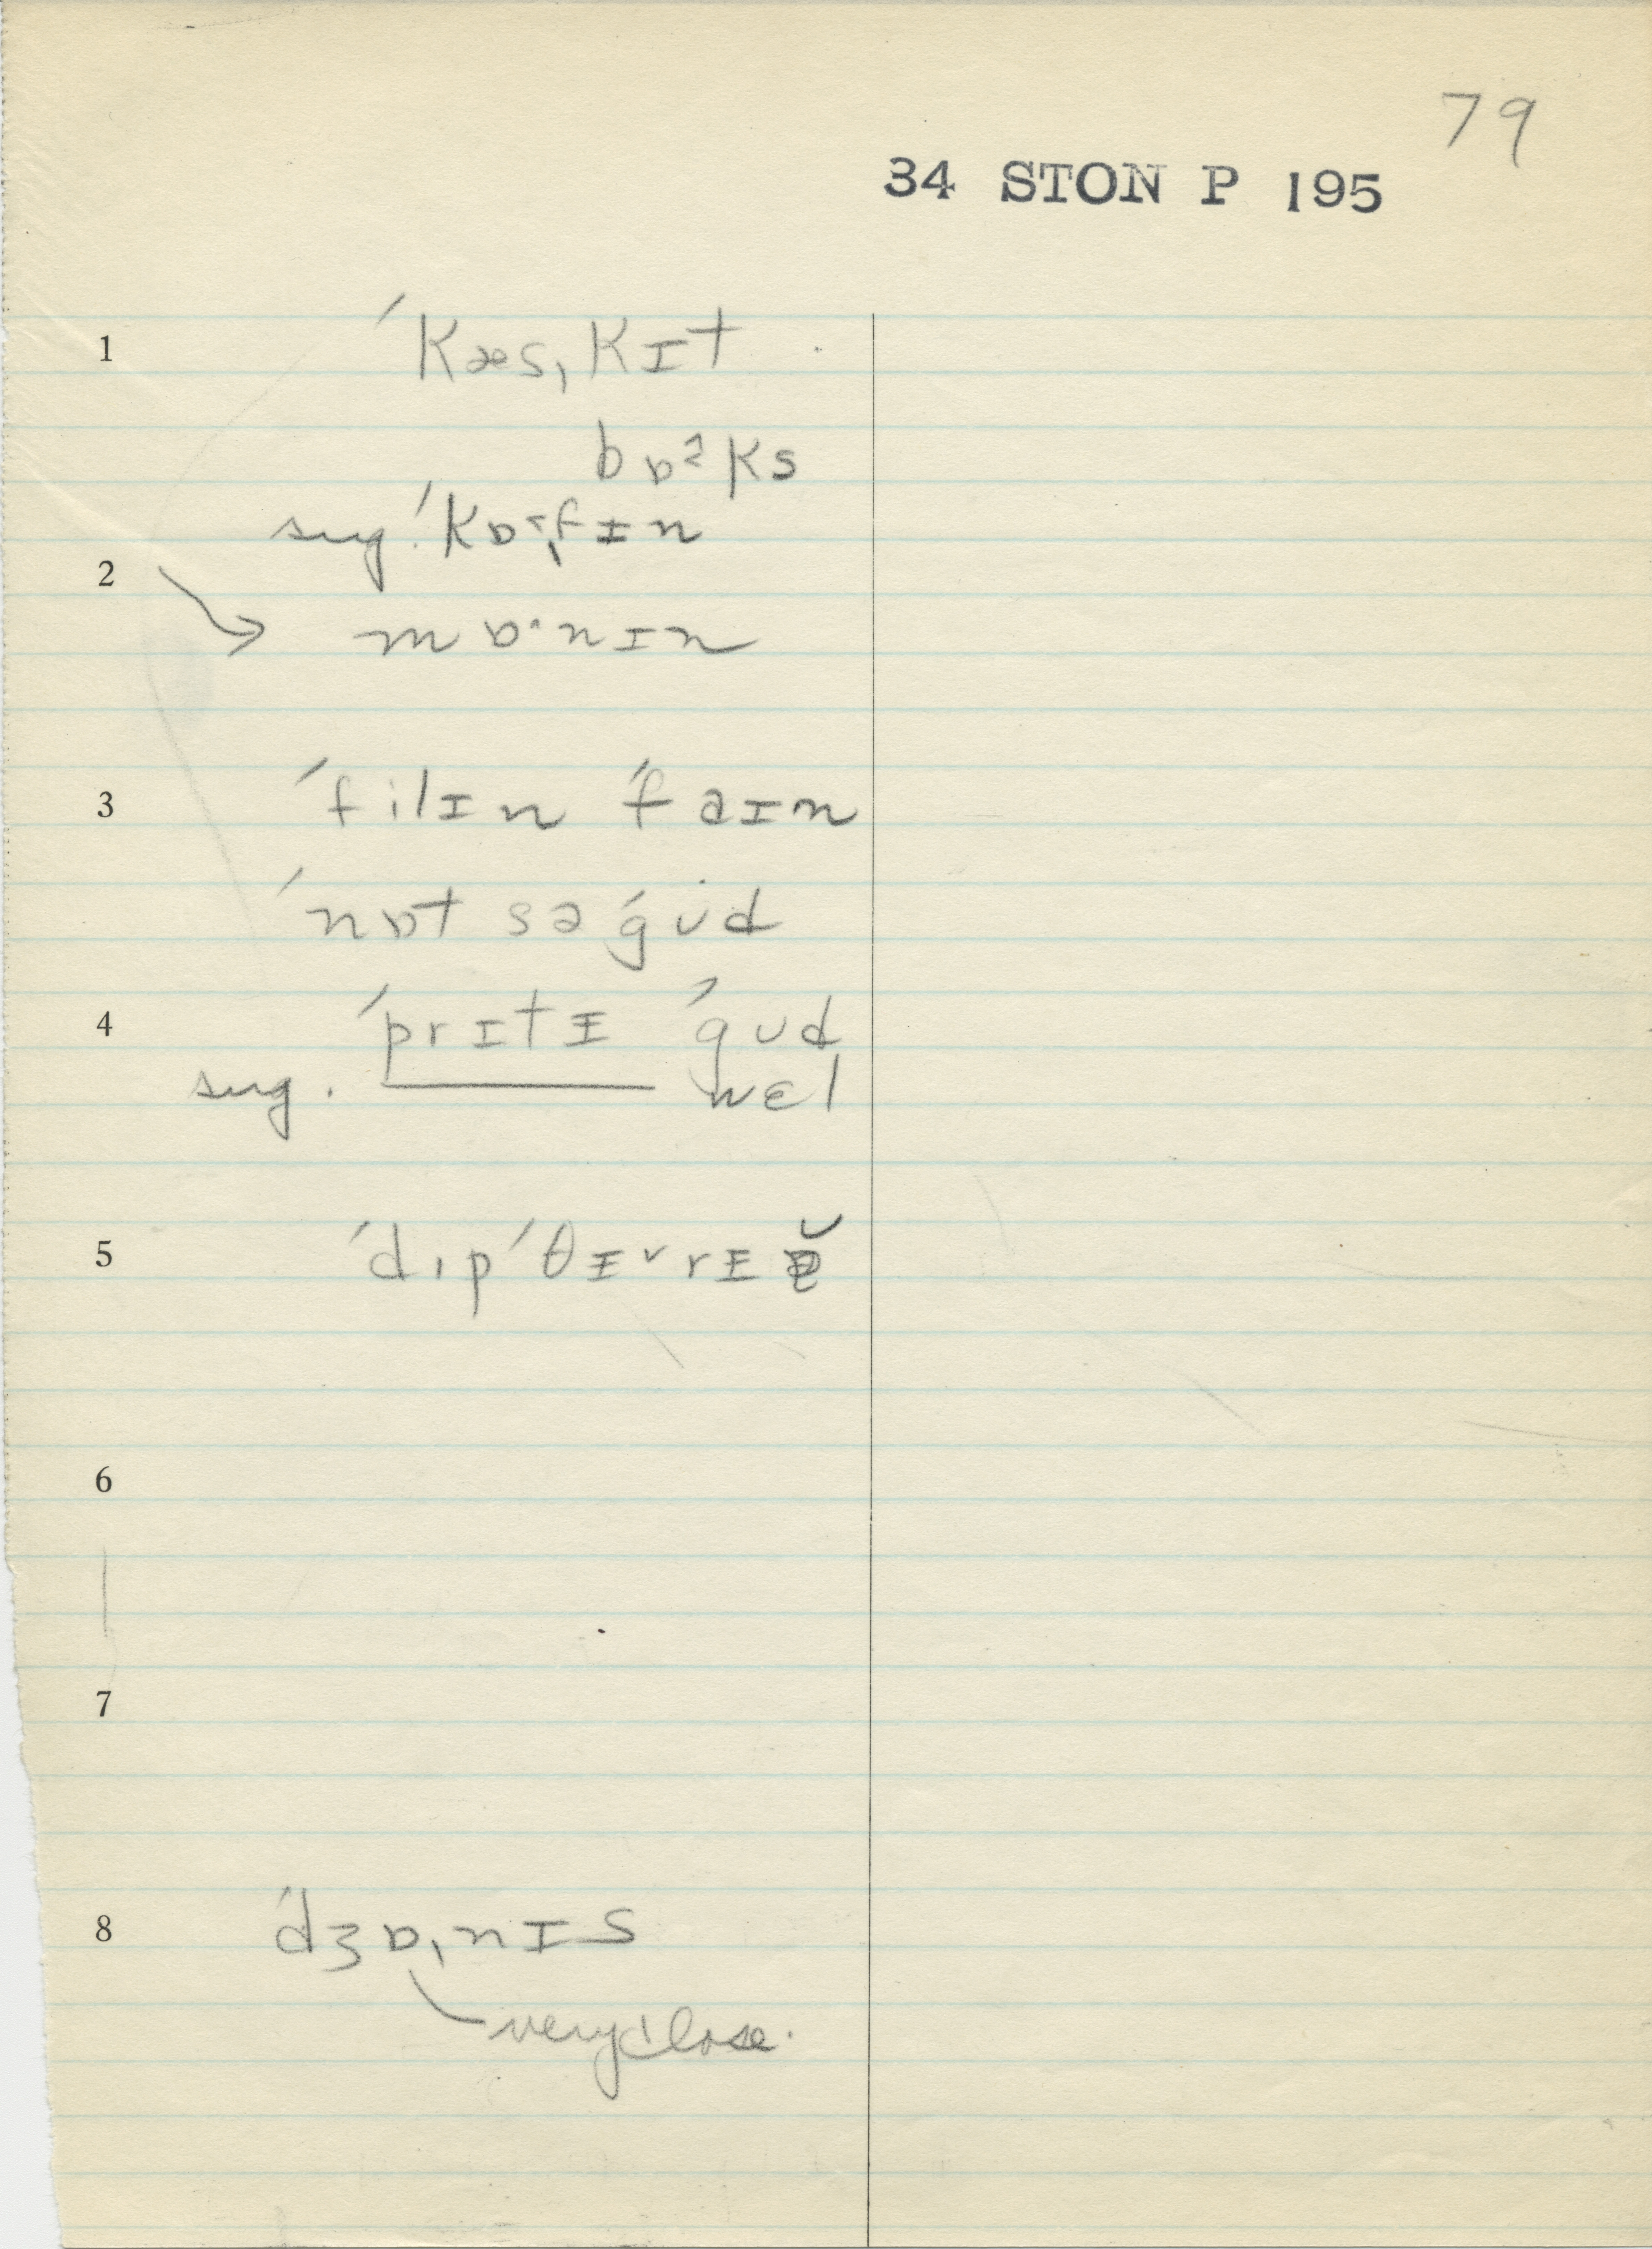 79
34 STON P 195
1 ˈkæsˌkɪt
bɒ˞ks
2 sug. ˈkɒ˞ˌfɪn
mɒ·nɪn
3 ˈfilɪn ˈfaɪn
ˈnɒt sə ˈgud
4 ˈprɪtɪ ˈgud
sug. ——— wɛl
5 ˈdɪpˈθɪ˅rɪə̆
6
7
8 ˈdʒɒˌnɪs
very close.